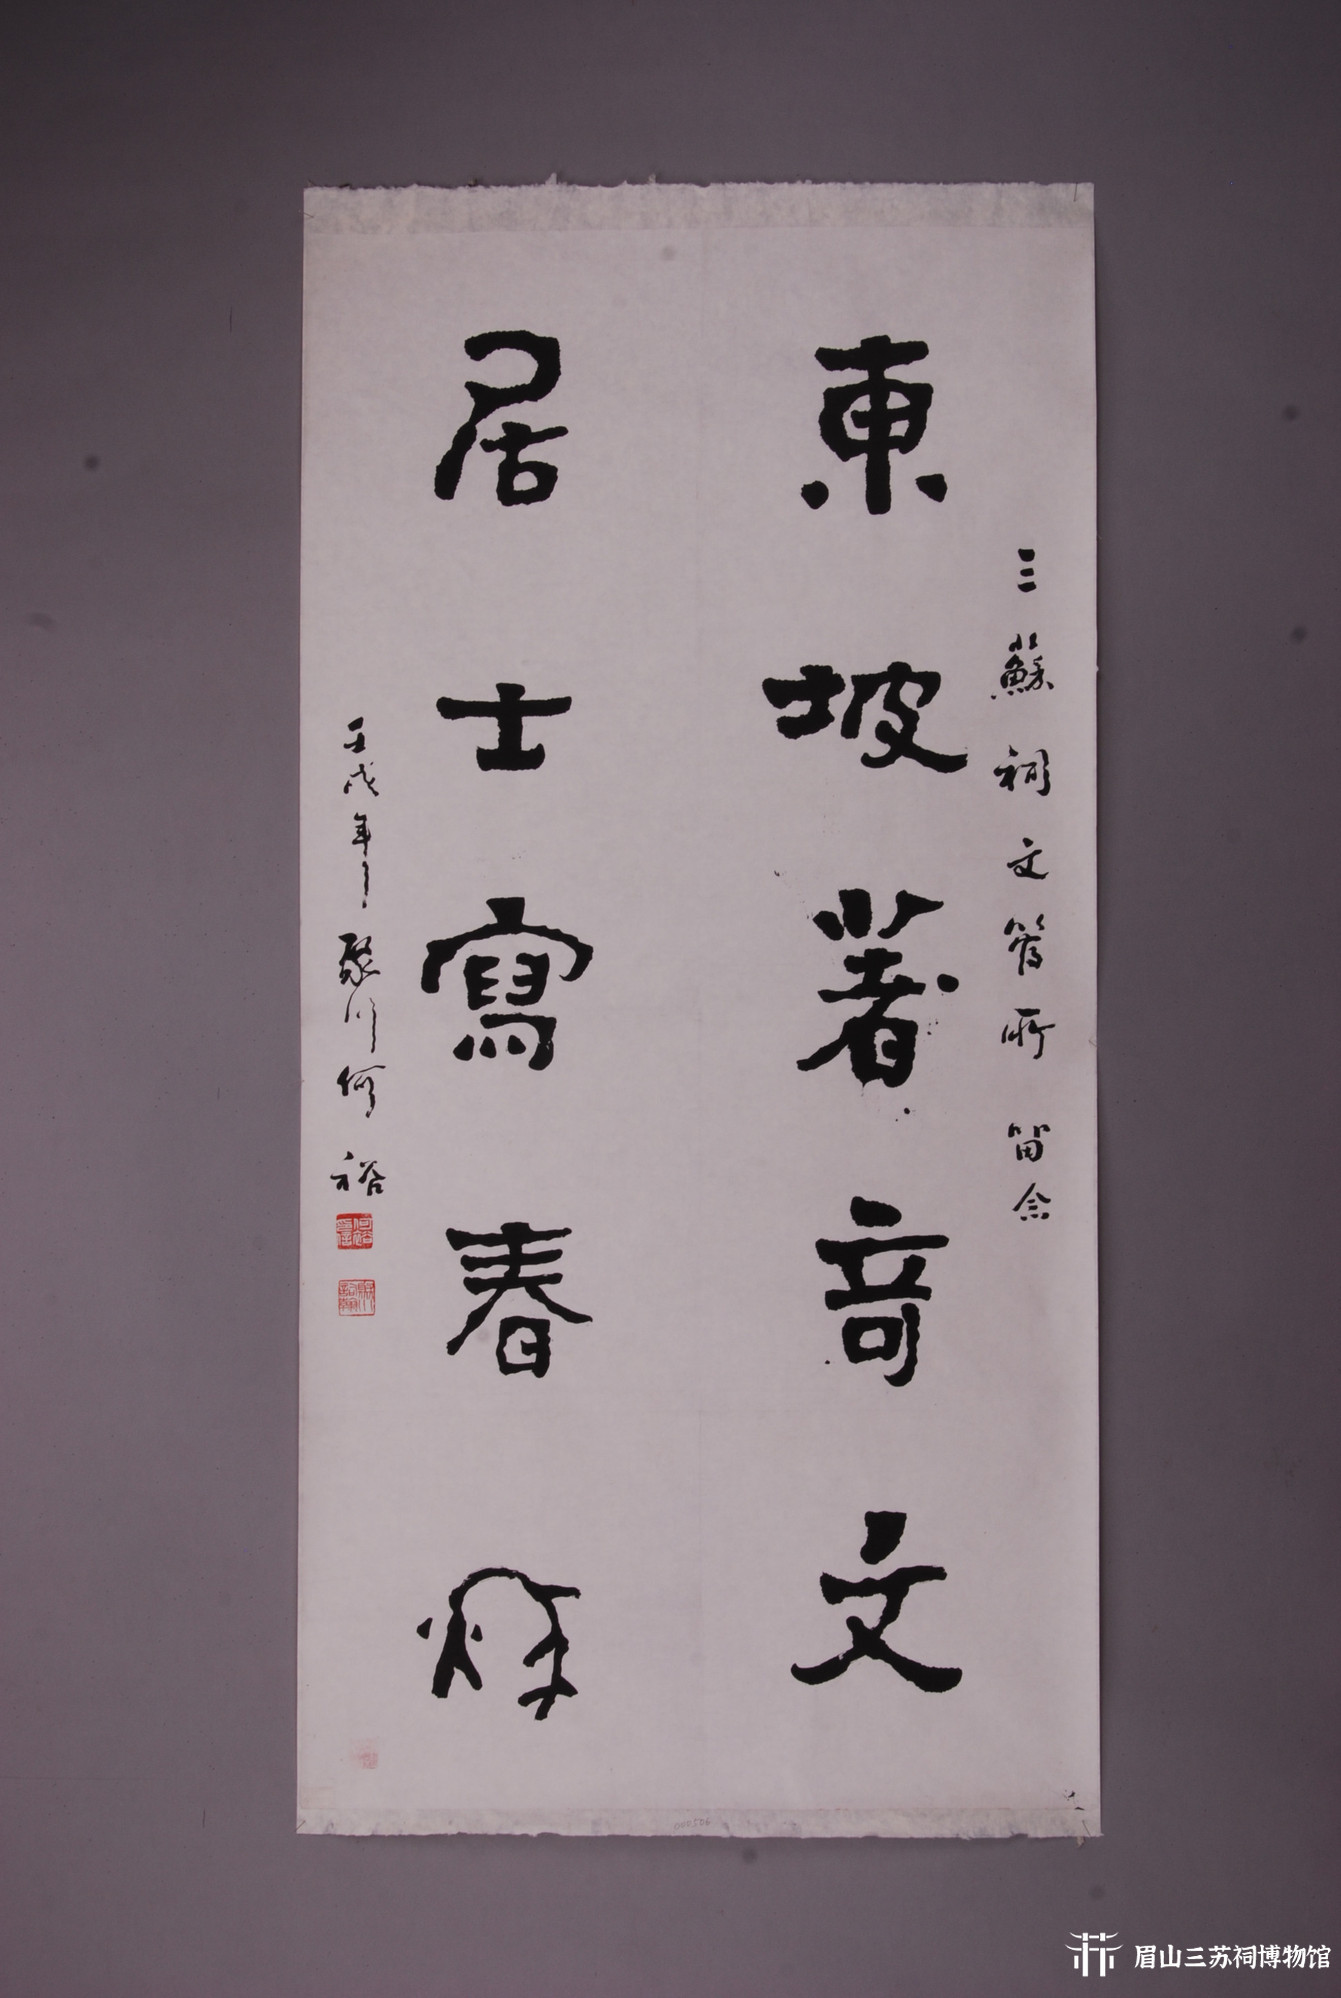 三蘇祠文管所留念
東坡著奇文
居士寫春秋
壬戌年 聚川何裕
眉山三苏祠博物馆